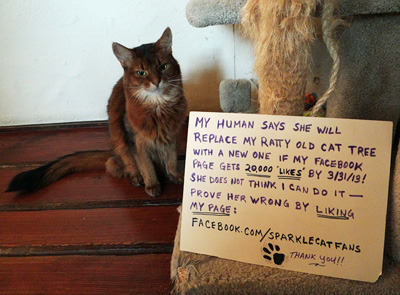 MY HUMAN SAYS SHE WILL
REPLACE MY RATTY OLD CAT TREE
WITH A NEW ONE IF MY FACEBOOK
PAGE GETS 20,000 "LIKES" BY 3/31/13!
SHE DOES NOT THINK I CAN DO IT —
PROVE HER WRONG BY LIKING
MY PAGE:
FACEBOOK.COM/SPARKLECATFANS
THANK YOU!!